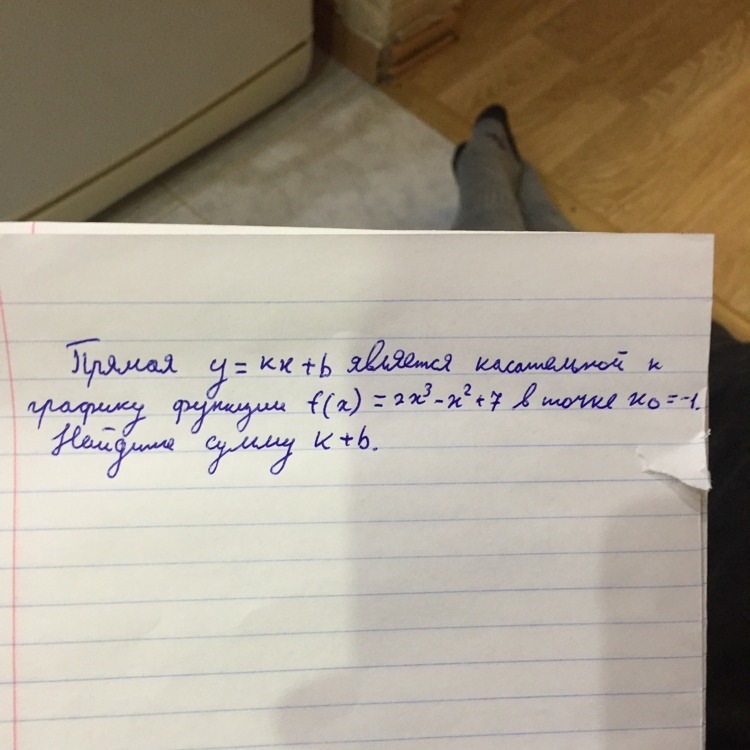 Прямая y = kx + b является касательной к
графику функции f(x) = 2x³ - x² + 7 в точке x₀ = -1.
Найдите сумму k + b.